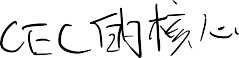 CEC的核心